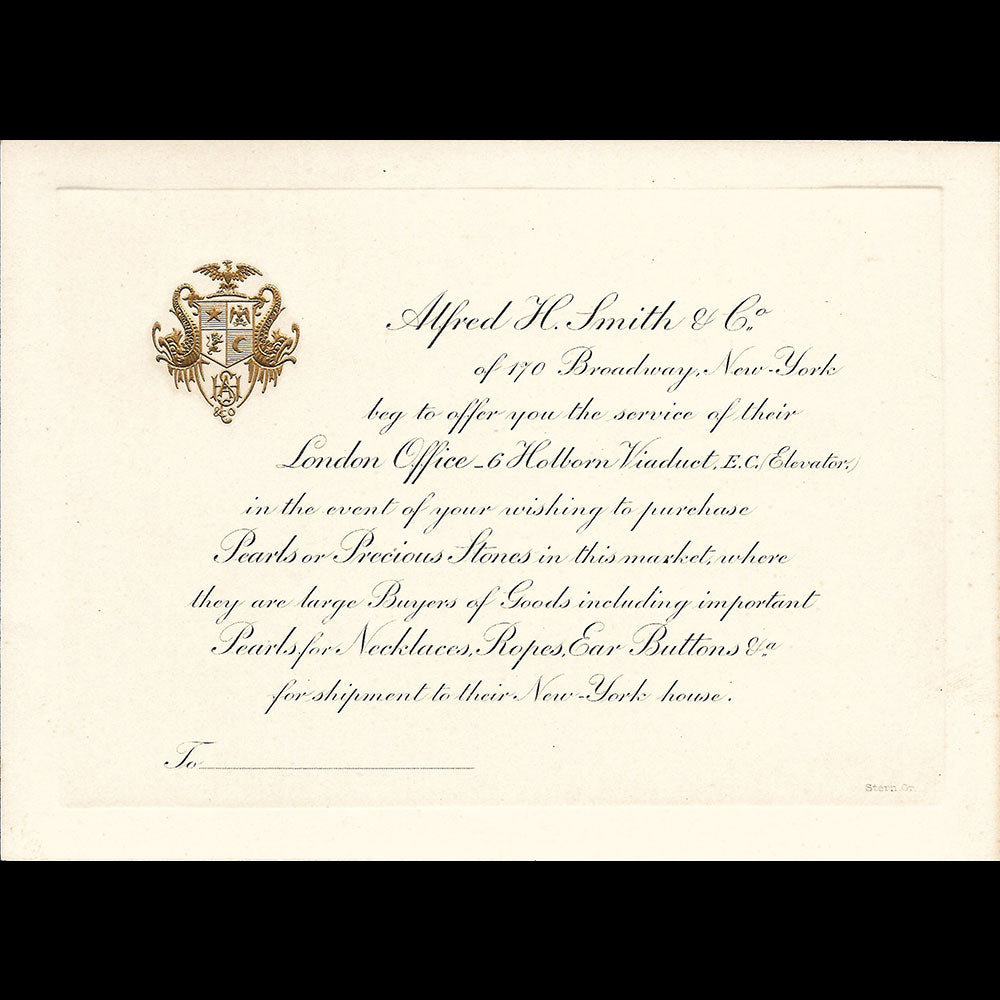 Alfred H. Smith & Co.
of 170 Broadway, New-York
beg to offer you the service of their
London Office_6 Holborn Viaduct, E.C. (Elevator,)
in the event of your wishing to purchase
Pearls or Precious Stones in this market, where
they are large Buyers of Goods including important
Pearls, for Necklaces, Ropes, Ear Buttons &a
for shipment to their New-York house.
To
Stern. Gr.